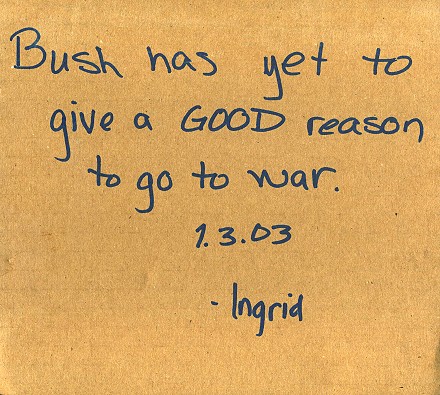 Bush has yet to
give a GOOD reason
to go to war.
1.3.03
- Ingrid